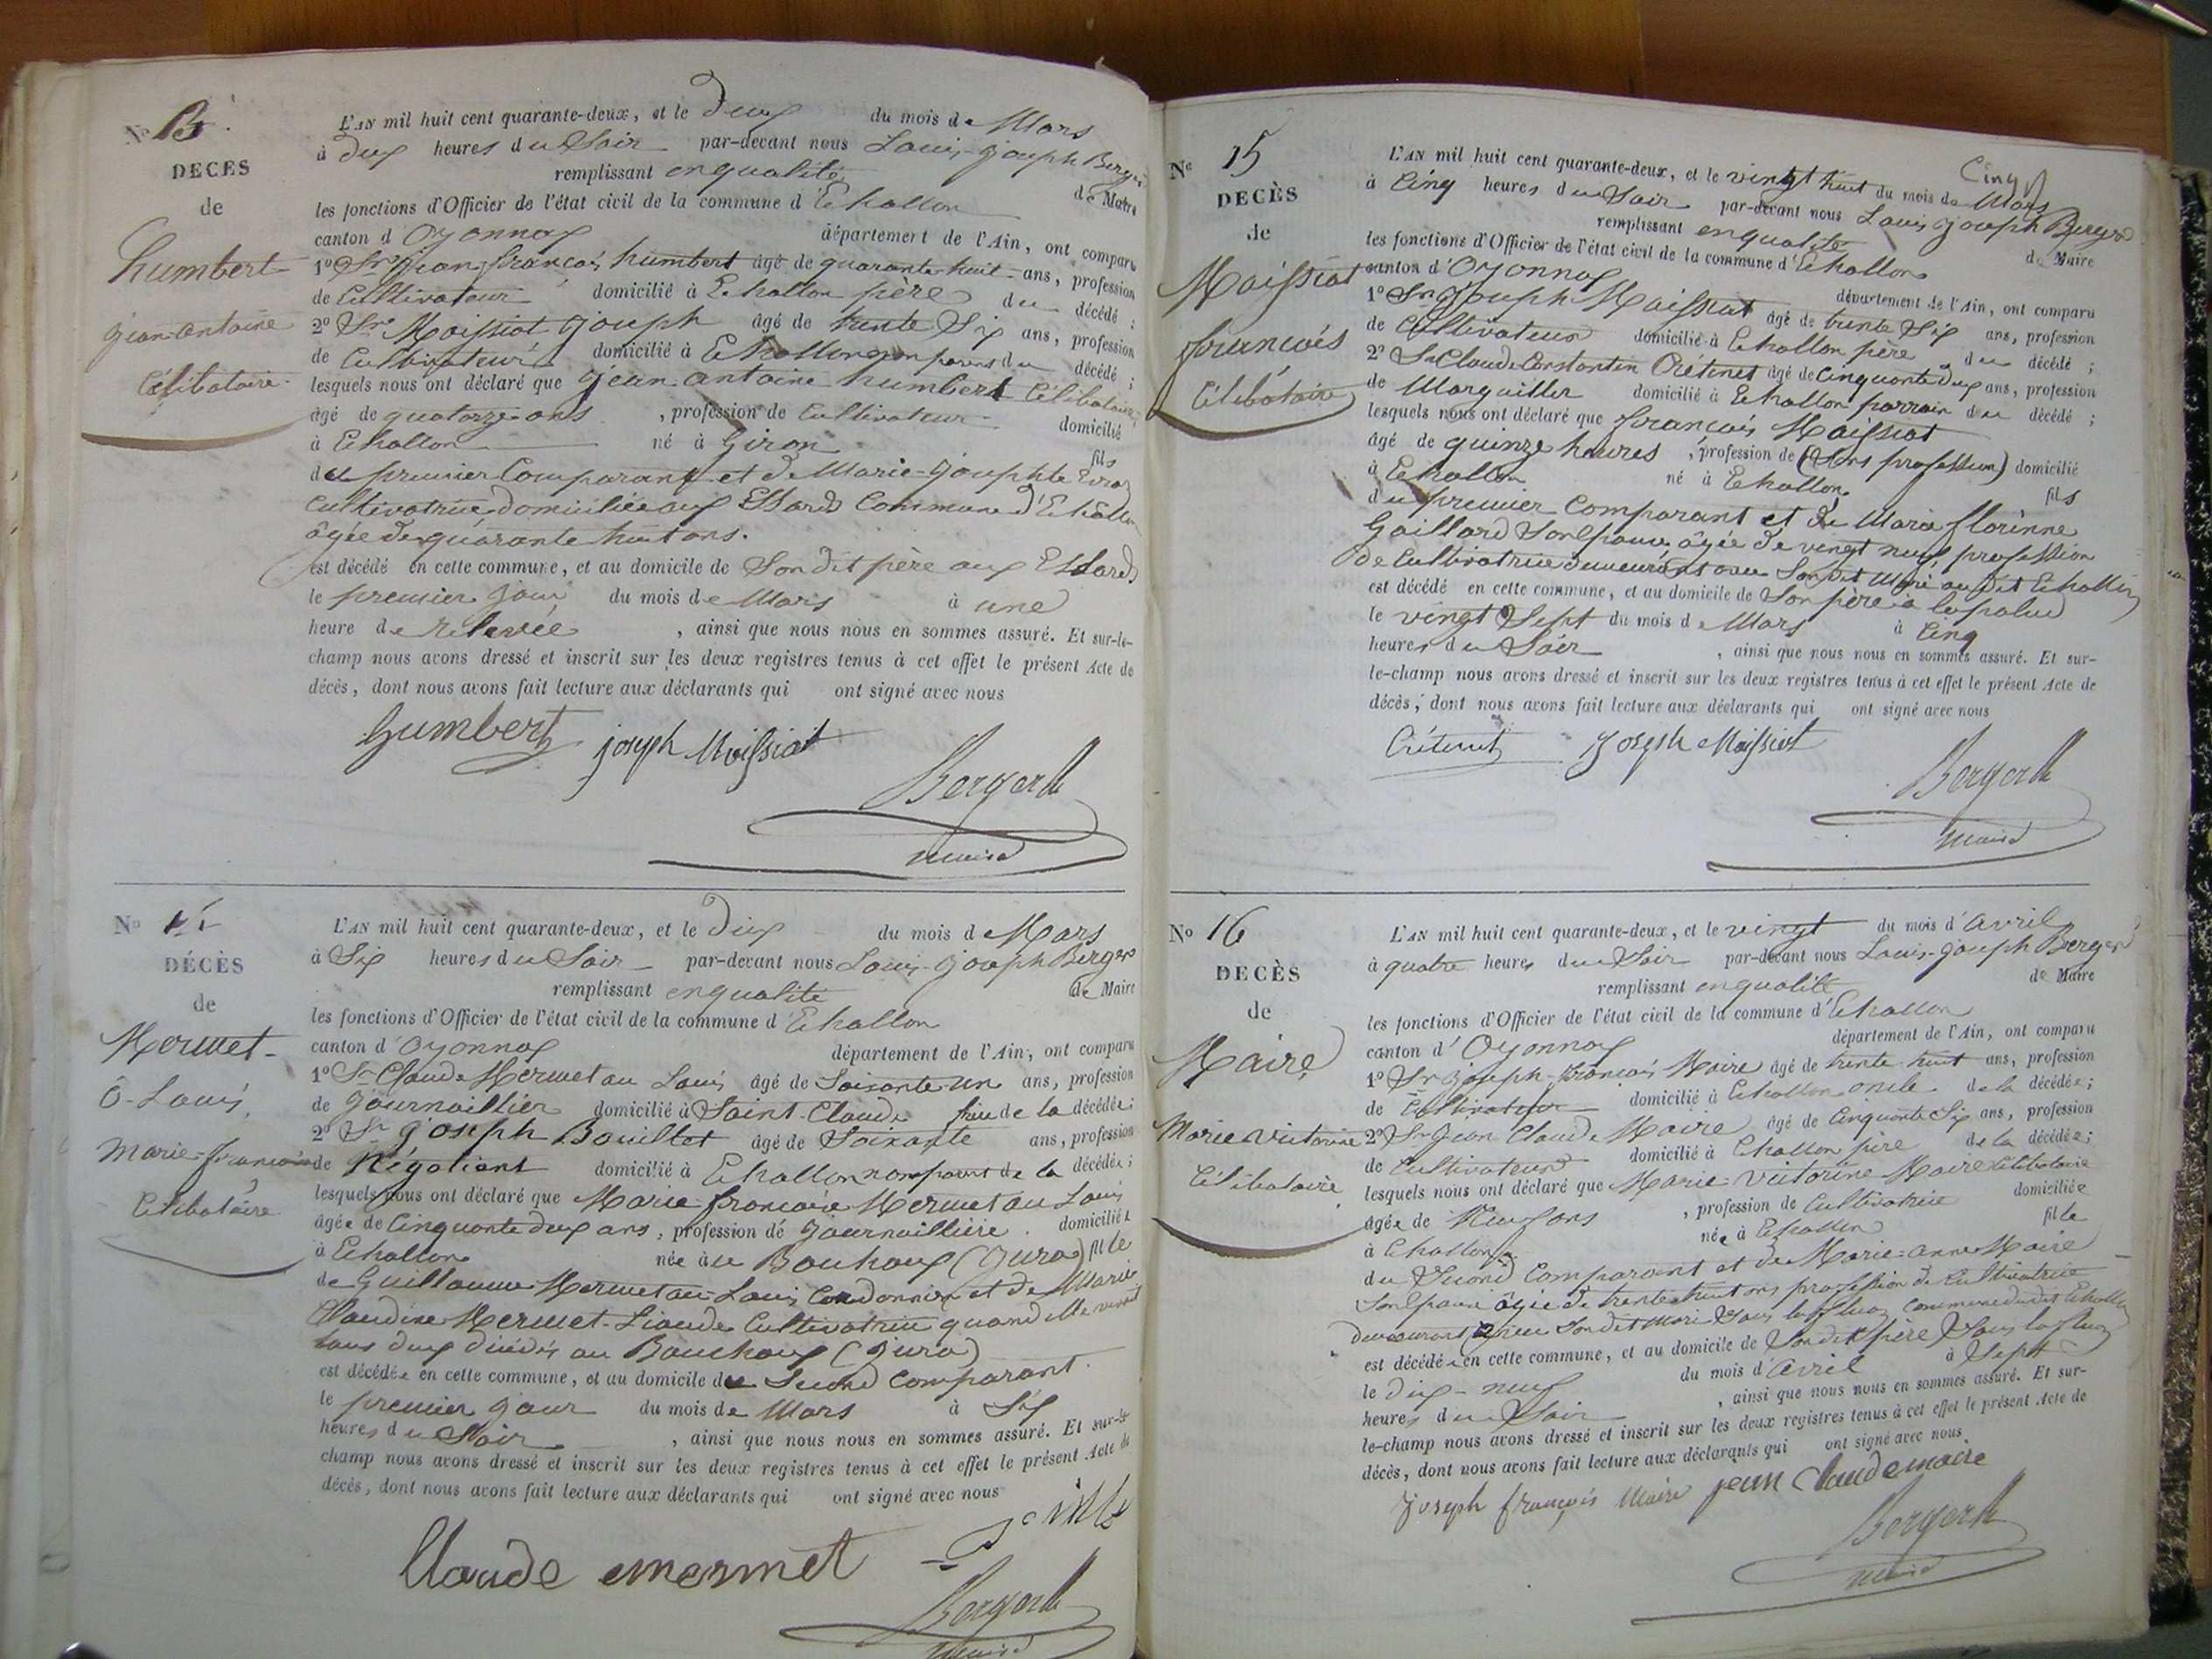 N° 13
DECES
de
humbert
jean-antoine
Célibataire
L'AN mil huit cent quarante-deux, et le deux du mois de Mars
à deux heures du Soir par-devant nous Louis-joseph Berger
remplissant en qualité de Maire
les fonctions d'Officier de l'état civil de la commune d'Echallon
canton d'Oyonnax département de l'Ain, ont comparu
1° Sr jean françois humbert âgé de quarante-huit ans, profession
de Cultivateur domicilié à Echallon père du décédé ;
2° Sr Moissiat joseph âgé de trente Six ans, profession
de Cultivateur domicilié à Echallon non parent du décédé ;
lesquels nous ont déclaré que jean-antoine humbert Célibataire
âgé de quatorze ans , profession de Cultivateur domicilié
à Echallon né à Giron fils
du premier Comparant et de Marie-josephte
Cultivatrice domiciliée aux Essards Commune d'Echallon
âgée de quarante huit ans.
est décédé en cette commune, et au domicile de Son dit père aux Essards
le premier jour du mois de Mars à une
heure de relevée , ainsi que nous nous en sommes assuré. Et sur-le-
champ nous avons dressé et inscrit sur les deux registres tenus à cet effet le présent Acte de
décès, dont nous avons fait lecture aux déclarants qui ont signé avec nous
humbert joseph Moissiat
Berger
maire
N° 14
DÉCÈS
de
Mermet-
-Louis
Marie-françoise
Célibataire
L'AN mil huit cent quarante-deux, et le deux du mois de Mars
à Six heures du Soir par-devant nous Louis-joseph Berger
remplissant en qualité de Maire
les fonctions d'Officier de l'état civil de la commune d'Echallon
canton d'Oyonnax département de l'Ain, ont comparu
1° Sr Claude Mermet au Louis âgé de Soixante-un ans, profession
de journaillier domicilié à Saint-Claude frère de la décédée ;
2° Sr joseph Bouillet âgé de Soixante ans, profession
de Négotiant domicilié à Echallon non parent de la décédée ;
lesquels nous ont déclaré que Marie françoise Mermet au Louis
âgée de Cinquante deux ans, profession de journaillière domiciliée
à Echallon née au Bouchoux (Jura) fille
de Guillaume Mermet au Louis Cordonnier et de Marie
Claudine Mermet-Liaude Cultivatrice quand elle vivait
tous deux décédés au Bouchoux (Jura)
est décédée en cette commune, et au domicile du Second Comparant
le premier jour du mois de Mars à Six
heures du Soir , ainsi que nous nous en sommes assuré. Et sur-le-
champ nous avons dressé et inscrit sur les deux registres tenus à cet effet le présent Acte de
décès, dont nous avons fait lecture aux déclarants qui ont signé avec nous
Claude mermet
Berger
maire
N° 15
DECÈS
de
Moissiat
françois
Célibataire
L'AN mil huit cent quarante-deux, et le vingt huit du mois de Mars
Cinq
à Cinq heures du Soir par-devant nous Louis joseph Berger
remplissant en qualité de Maire
les fonctions d'Officier de l'état civil de la commune d'Echallon
canton d'Oyonnax département de l'Ain, ont comparu
1° Sr joseph Moissiat âgé de trente Six ans, profession
de Cultivateur domicilié à Echallon père du décédé ;
2° Sr Claude Constantin Crétinet âgé de Cinquante deux ans, profession
de Marguillier domicilié à Echallon parrain du décédé ;
lesquels nous ont déclaré que françois Moissiat
âgé de quinze heures , profession de (Sans profession) domicilié
à Echallon né à Echallon fils
du premier Comparant et de Marie florinne
Gaillard Son Epouse âgée de vingt neuf profession
de Cultivatrice demeurant avec Son dit Mari au dit Echallon
est décédé en cette commune, et au domicile de Son père à lapalud
le vingt Sept du mois de Mars à Cinq
heures du Soir , ainsi que nous nous en sommes assuré. Et sur-
le-champ nous avons dressé et inscrit sur les deux registres tenus à cet effet le présent Acte de
décès, dont nous avons fait lecture aux déclarants qui ont signé avec nous
Crétinet Joseph Moissiat
Berger
maire
N° 16
DECÈS
de
Maire
Marie Victorine
Célibataire
L'AN mil huit cent quarante-deux, et le vingt du mois d'avril
à quatre heures du Soir par-devant nous Louis-joseph Berger
remplissant en qualité de Maire
les fonctions d'Officier de l'état civil de la commune d'Echallon
canton d'Oyonnax département de l'Ain, ont comparu
1° Sr joseph-françois Maire âgé de trente-huit ans, profession
de Cultivateur domicilié à Echallon oncle de la décédée ;
2° Sr jean Claude Maire âgé de Cinquante Six ans, profession
de Cultivateur domicilié à Echallon père de la décédée ;
lesquels nous ont déclaré que Marie-Victorine Maire Célibataire
âgée de Neuf ans , profession de Cultivatrice domiciliée
à Echallon née à Echallon fille
du Second Comparant et de Marie-anne Maire
Son Epouse âgée de trente huit ans profession de Cultivatrice
demeurant avec Son dit Mari Sous commune du dit Echallon
est décédée en cette commune, et au domicile de Son dit père Sous
le dix-neuf du mois d'avril à Sept
heures du Soir , ainsi que nous nous en sommes assuré. Et sur-
le-champ nous avons dressé et inscrit sur les deux registres tenus à cet effet le présent Acte de
décès, dont nous avons fait lecture aux déclarants qui ont signé avec nous
joseph françois Maire jean Claude maire
Berger
maire